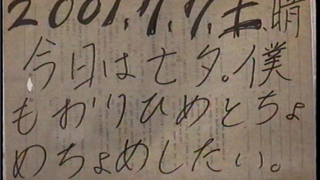 2001.7.7.土.晴
今日は七夕。僕
もおりひめとちょ
めちょめしたい。